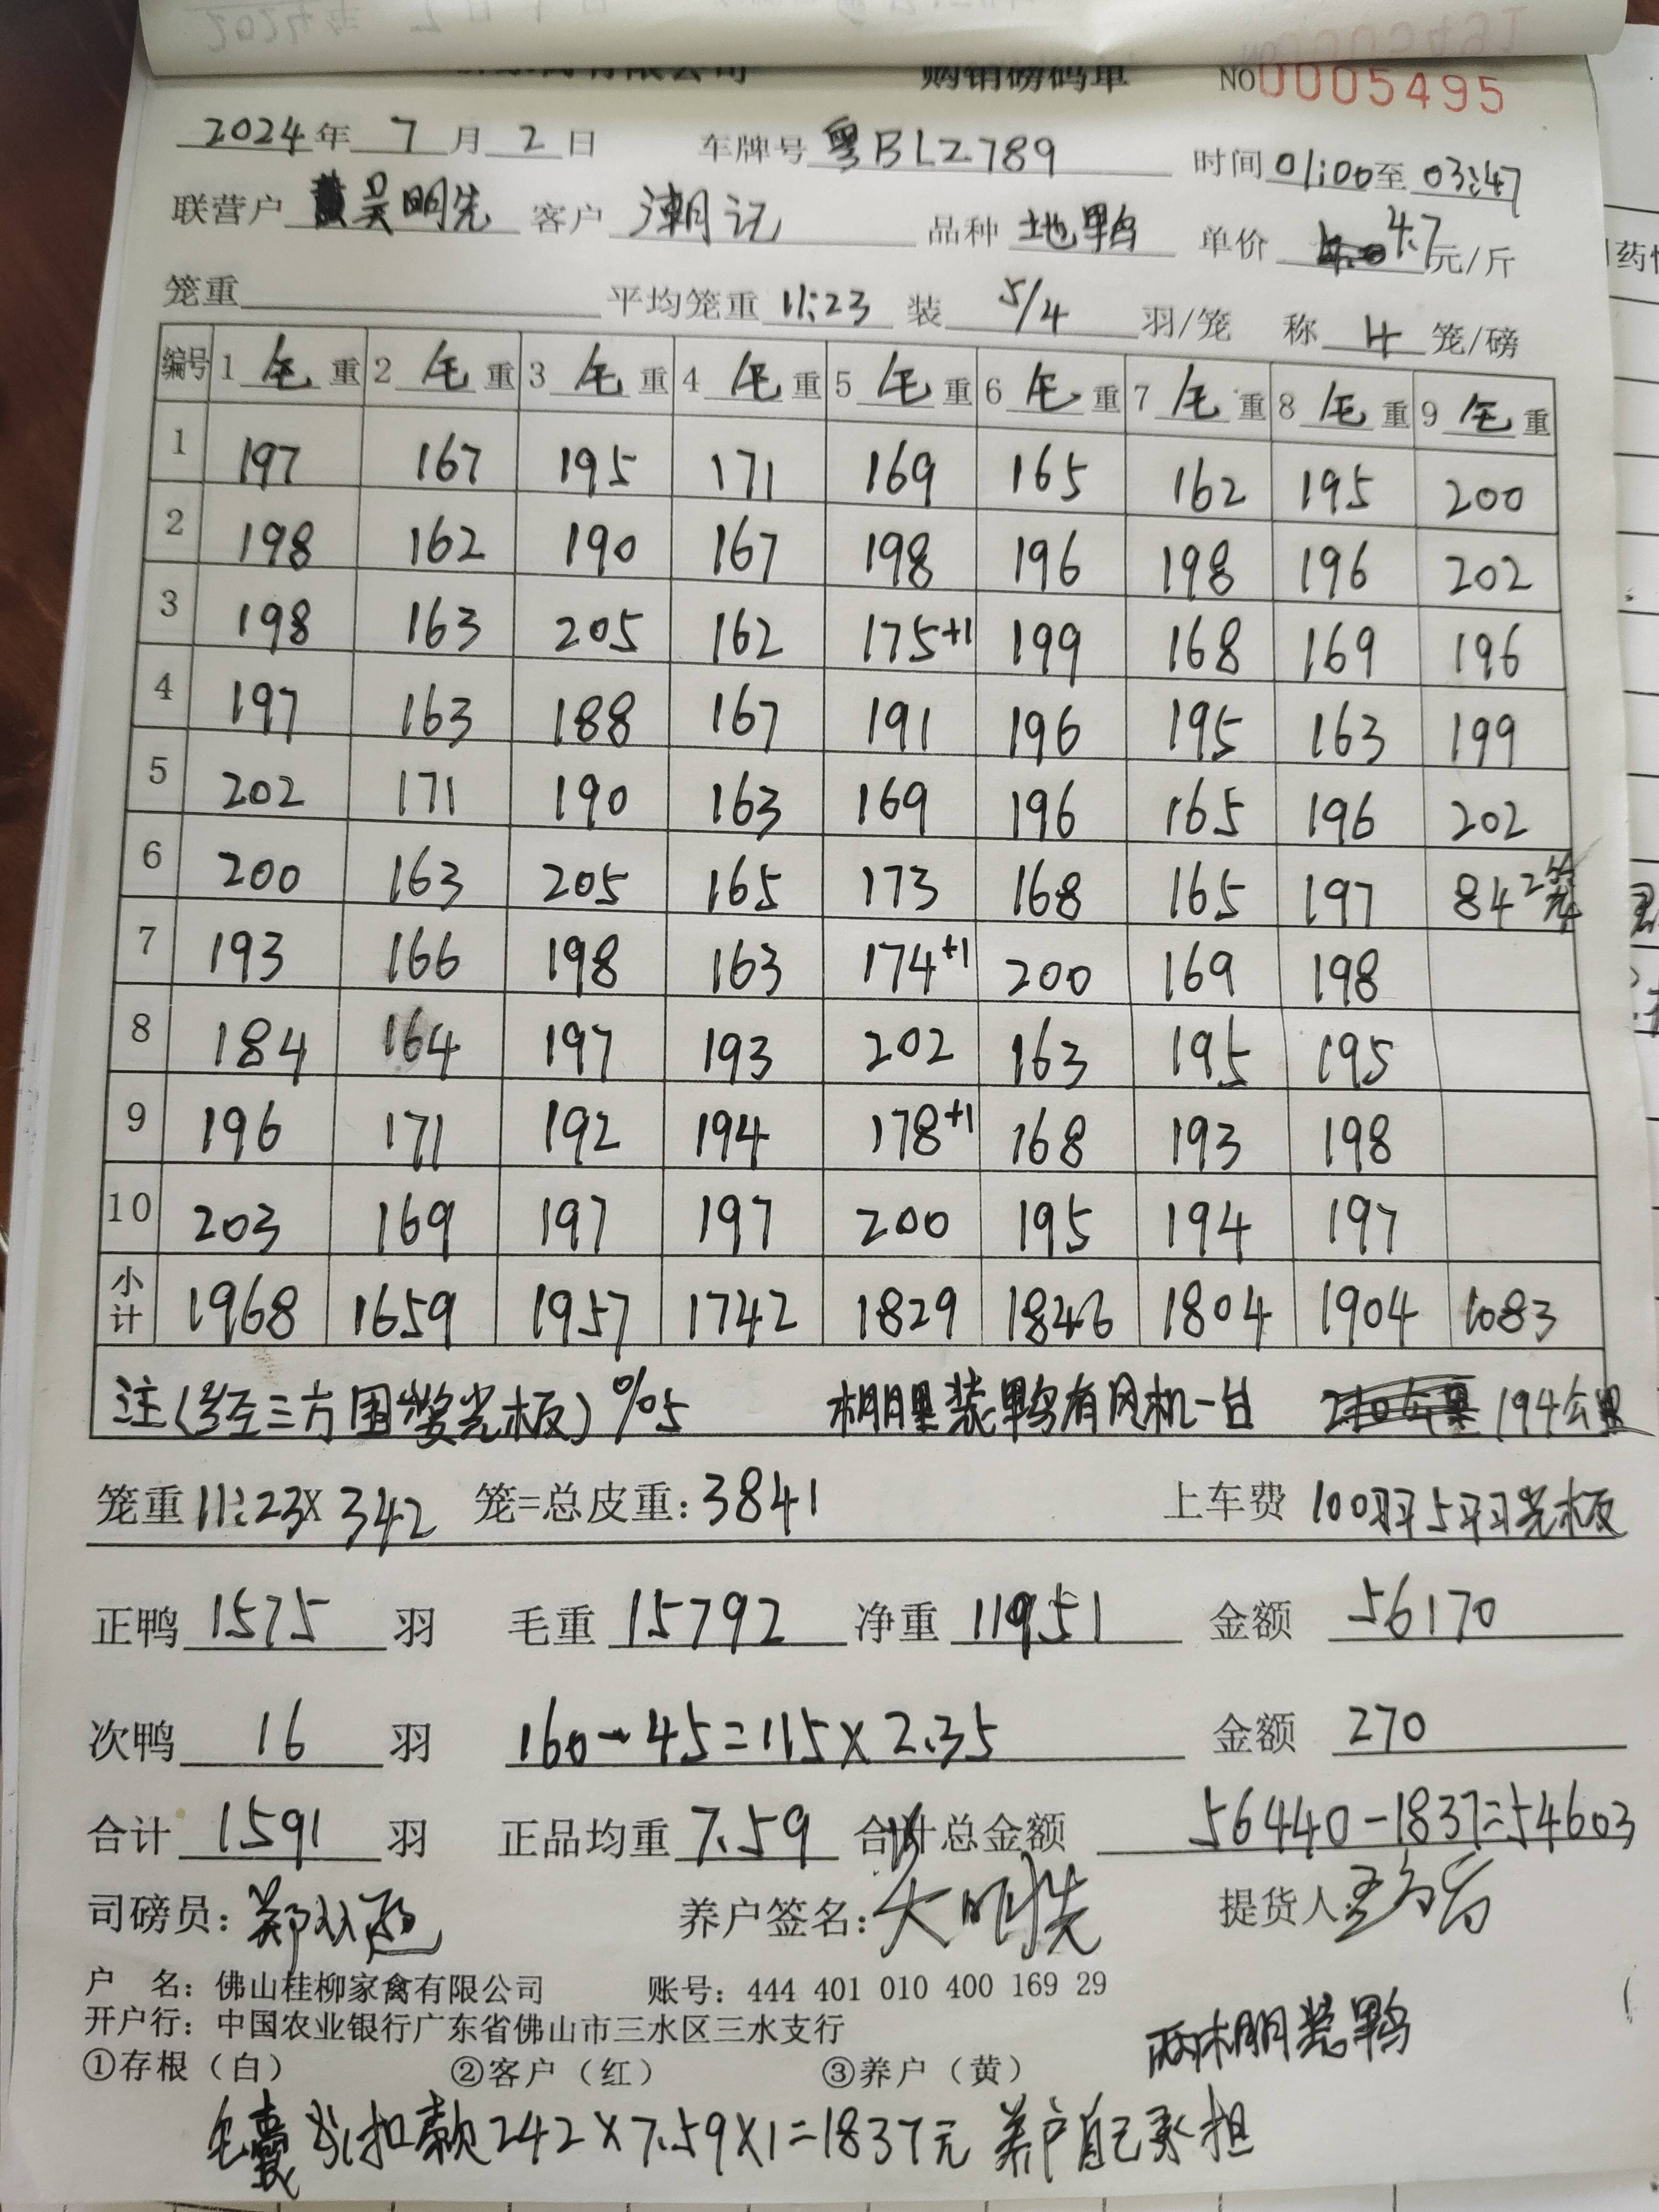 购销磅码单 NO 0005495
2024年 7月 2日 车牌号 粤BLZ789 时间 01:00至 03:47
联营户 吴明先 客户 潮记 品种 地鸭 单价 4.7元/斤
笼重 平均笼重 11.23 装 5/4 羽/笼 称 4 笼/磅
编号 1 毛 重 2 毛 重 3 毛 重 4 毛 重 5 毛 重 6 毛 重 7 毛 重 8 毛 重 9 毛 重
1 197 167 195 171 169 165 162 195 200
2 198 162 190 167 198 196 198 196 202
3 198 163 205 162 175+1 199 168 169 196
4 197 163 188 167 191 196 195 163 199
5 202 171 190 163 169 196 165 196 202
6 200 163 205 165 173 168 165 197 84 2笼
7 193 166 198 163 174+1 200 169 198
8 184 164 197 193 202 163 195 195
9 196 171 192 194 178+1 168 193 198
10 203 169 197 197 200 195 194 197
小计 1968 1659 1957 1742 1829 1846 1804 1904 1083
注(经三方同意光板)%5 棚里装鸭有风机一台 194公里
笼重 11.23X 342 笼=总皮重: 3841 上车费 100羽5羽光板
正鸭 1575 羽 毛重 15792 净重 11951 金额 56170
次鸭 16 羽 160-45=115×2.35 金额 270
合计 1591 羽 正品均重 7.59 合计总金额 56440-1837=54603
司磅员: 养户签名: 提货人
户 名: 佛山桂柳家禽有限公司 账号: 444 401 010 400 169 29
开户行: 中国农业银行广东省佛山市三水区三水支行
①存根(白) ②客户(红) ③养户(黄)
两棚装鸭
毛囊 扣款242×7.59×1=1837元 养户自己承担